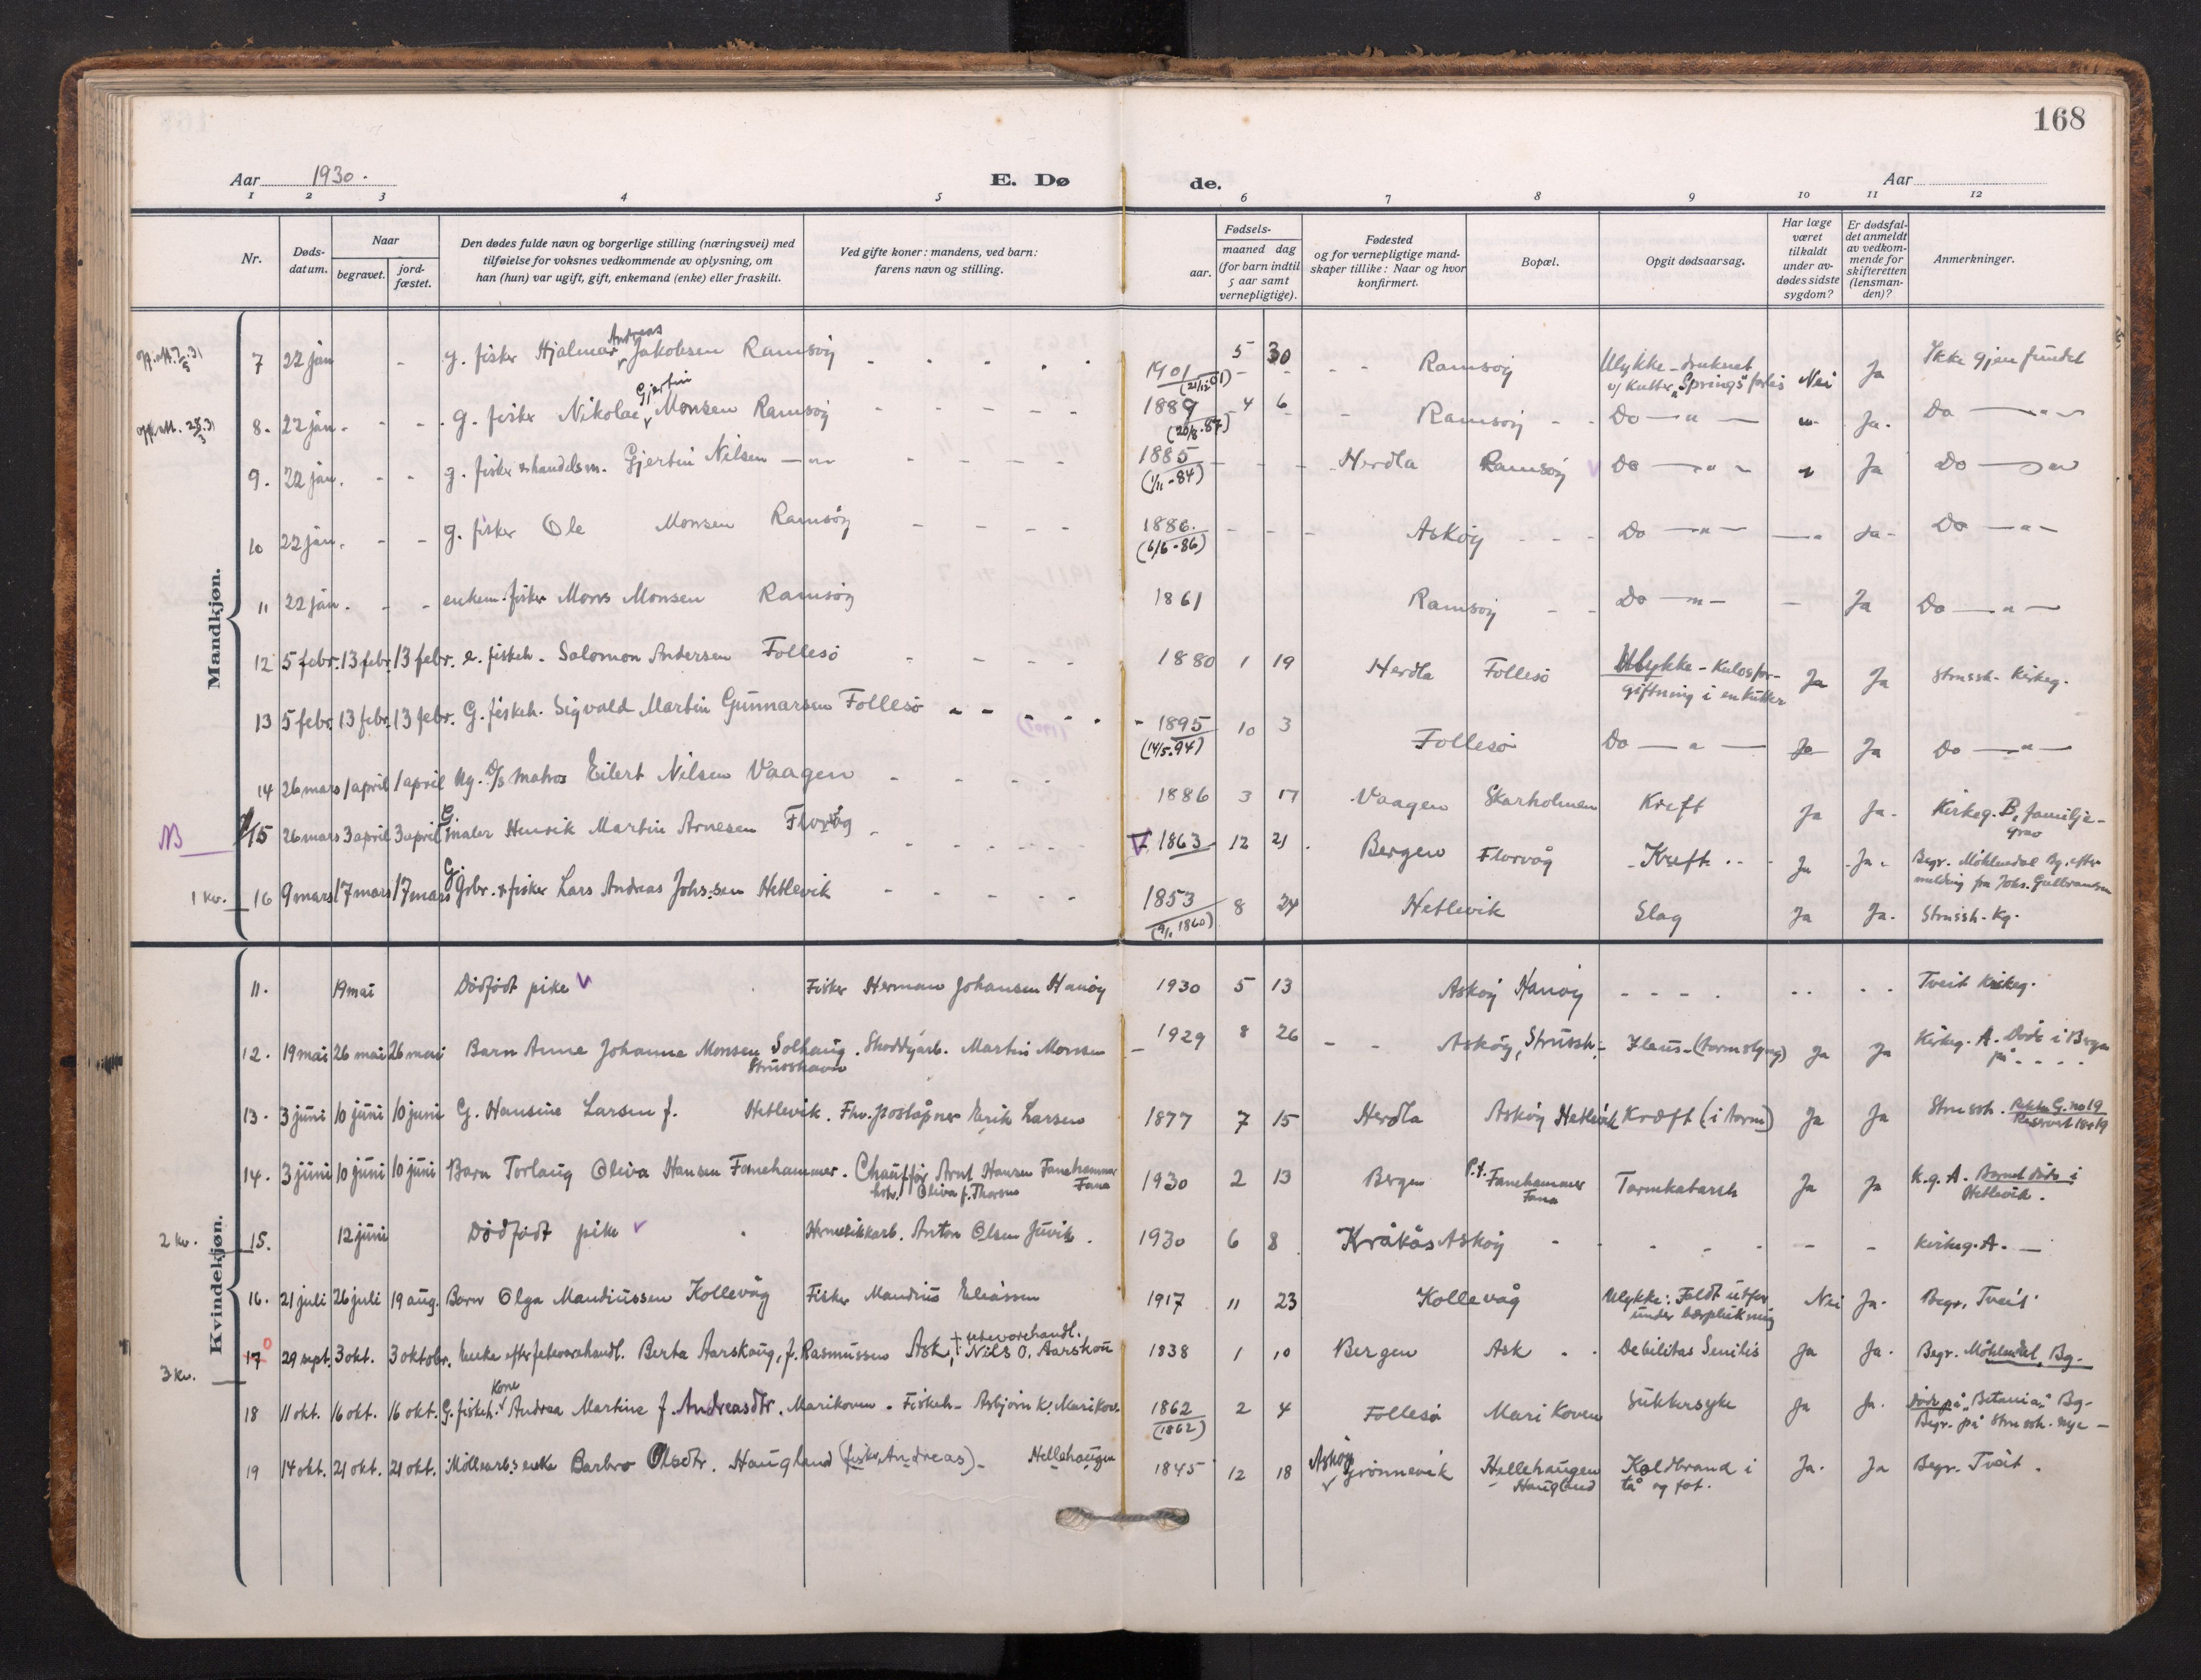 168
Aar 1930.
E. Dø
de.
Aar
1 2 3 4 5 6 7 8 9 10 11 12
Nr.
Døds-
datum.
Naar
begravet.
jord-
fæstet.
Den dødes fulde navn og borgerlige stilling (næringsvei) med
tilføielse for voksnes vedkommende av oplysning, om
han (hun) var ugift, gift, enkemand (enke) eller fraskilt.
Ved gifte koner: mandens, ved barn:
farens navn og stilling.
Fødsels-
aar.
maaned dag
(for barn indtil
5 aar samt
vernepligtige).
Fødested
og for vernepligtige mand-
skaper tillike: Naar og hvor
konfirmert.
Bopæl.
Opgit dødsaarsag.
Har læge
været
tilkaldt
under av-
dødes sidste
sygdom?
Er dødsfal-
det anmeldt
av vedkom-
mende for
skifteretten
(lensman-
den)?
Anmerkninger.
Mandkjøn.
7 22 jan - g. fisker Hjalmar Andreas Jakobsen Ramsøy - - - - 1901 5 30 - - Ramsøy Ulykke - druknet Nei Ja Ikke gjenfundet
(21/12 01) v/ Kutter "Springs" forlis
8. 22 jan. - - g. fisker Nikolai Gjertin Monsen Ramsøy - - - - - 1889 4 6 - Ramsøy - - Do — " — " Ja. Do — " —
(20/8 - 87)
9. 22 jan. - - g. fisker & handelsm. Gjertin Nilsen — " — - - - - 1885 - - - Herdla Ramsöy V Do — " — " Ja Do — " —
(1/11 - 84)
10 22 jan. - - g. fisker Ole Monsen Ramsöy - - - - 1886. - - - Askøy - - - Do — " — — " Ja - Do — " —
(6/6 - 86)
11 22 jan. - - enkem. fisker Mons Monsen Ramsöy 1861 Ramsøy - - Do — " — - Ja Do — " —
12 5 febr. 13 febr. 13 febr. e. fiskeh. Salomon Andersen Follesø - - - - 1880 1 19 Herdla Follesø Ulykke - Kulosfor- Ja Ja Strussh. Kirkeg.
giftning i en kutter
13 5 febr. 13 febr. 13 febr. G. fiskeh. Sigvald Martin Gunnarsen Follesø - - - - - - 1895 10 3 Follesø Do — " — Ja Ja Do — " —
(14/5. 94)
14 26 mars 1 april 1 april Ug. D/S Matros Eilert Nilsen Vaagen - - - - 1886 3 17 Vaagen Skarholmen Kreft Ja Ja. Kirkeg. B, familje-
grav
NB 15 26 mars 3 april 3 april G maler Henrik Martin Arnesen Florvåg - - - - - V 1863 12 21. Bergen Florvåg - Kreft .. - Ja - Ja. Begr. Möhlendal Bg. efter
melding fra Johs. Gulbransen
1 kv. 16 9 mars 17 mars 17 mars G Grbr. & fisker Lars Andreas Johs.sen Hetlevik - - - - - 1853 8 24 Hetlevik Slag Ja Ja. Strussh. Kg.
Kvindekjøn.
11. 19 mai Dødfødt pike V Fisker Herman Johansen Hanøy 1930 5 13 Askøy Hanøy - - - . - - - - Tveit Kirkeg.
12. 19 mai 26 mai 26 mai Barn Anne Johanne Monsen Solhaug. Skoddyarb. Martin Monsen - 1929 8 26 - - Askøy, Strussh. - Ileus - (tarmslyng) Ja Ja Kirkeg. A. Døde i Bergen
Strusshavn på - - - -
13. 3 juni 10 juni 10 juni G. Hansine Larsen f. Hetlevik. Fhv. poståpner Erik Larsen 1877 7 15 Herdla Askøy Hetlevik Kræft (i tarm) Ja Ja Strussh. Rekke G. no 19
Reservert 18 & 19
14. 3 juni 10 juni 10 juni Barn Torlaug Oliva Hansen Fanehammer. Chauffør Arnt Hansen Fanehammer 1930 2 13 Bergen P.t. Fanehammer Tarmkatarrh Ja Ja K.g. A. Barnet døde i
Oliva f. Thorsen Fana Fana Hetlevik.
2 kv. 15. 12 juni Dødfødt pike V Hermetikkarb. Anton Olsen Juvik. 1930 6 8 Kråkås Askøy - - - - - - - Kirkeg. A. —
16. 21 juli 26 juli 19 aug. Barn Olga Mandiussen Kollevåg Fisker Mandius Eliassen 1917 11 23 Kollevåg Ulykke: Faldt utfor Nei Ja. Begr. Tveit
under bærplukning
3 kv. 17 0 29 sept. 3 okt. 3 oktobr. Enke efter fetevarehandl. Berta Aarskaug, f. Rasmussen Ask, † fetevarehandl. Nils O. Aarskou 1838 1 10 Bergen Ask . . Debilitas Senilis Ja Ja. Begr. Möhlendal, Bg.
18 11 okt. 16 okt. 16 okt. G. fiskeh. Kone Andrea Martine f. Andreasdtr. Marikoven. Fiskeh. Asbjörn K. Marikov. 1862 2 4 Follesø Mari Koven Sukkersyke Ja Ja. Døde på "Betania" Bg.
(1862) Begr. på Strussh. nye —
19 14 okt. 21 okt. 21 okt. Møllearb.s enke Barbro Olsdtr. Haugland (fisker Andreas) - Hellehaugen 1845 12 18 Askøy Grønnevik Hellehaugen Koldbrand i Ja. Ja Begr. Tveit.
Haugland tå og fot.